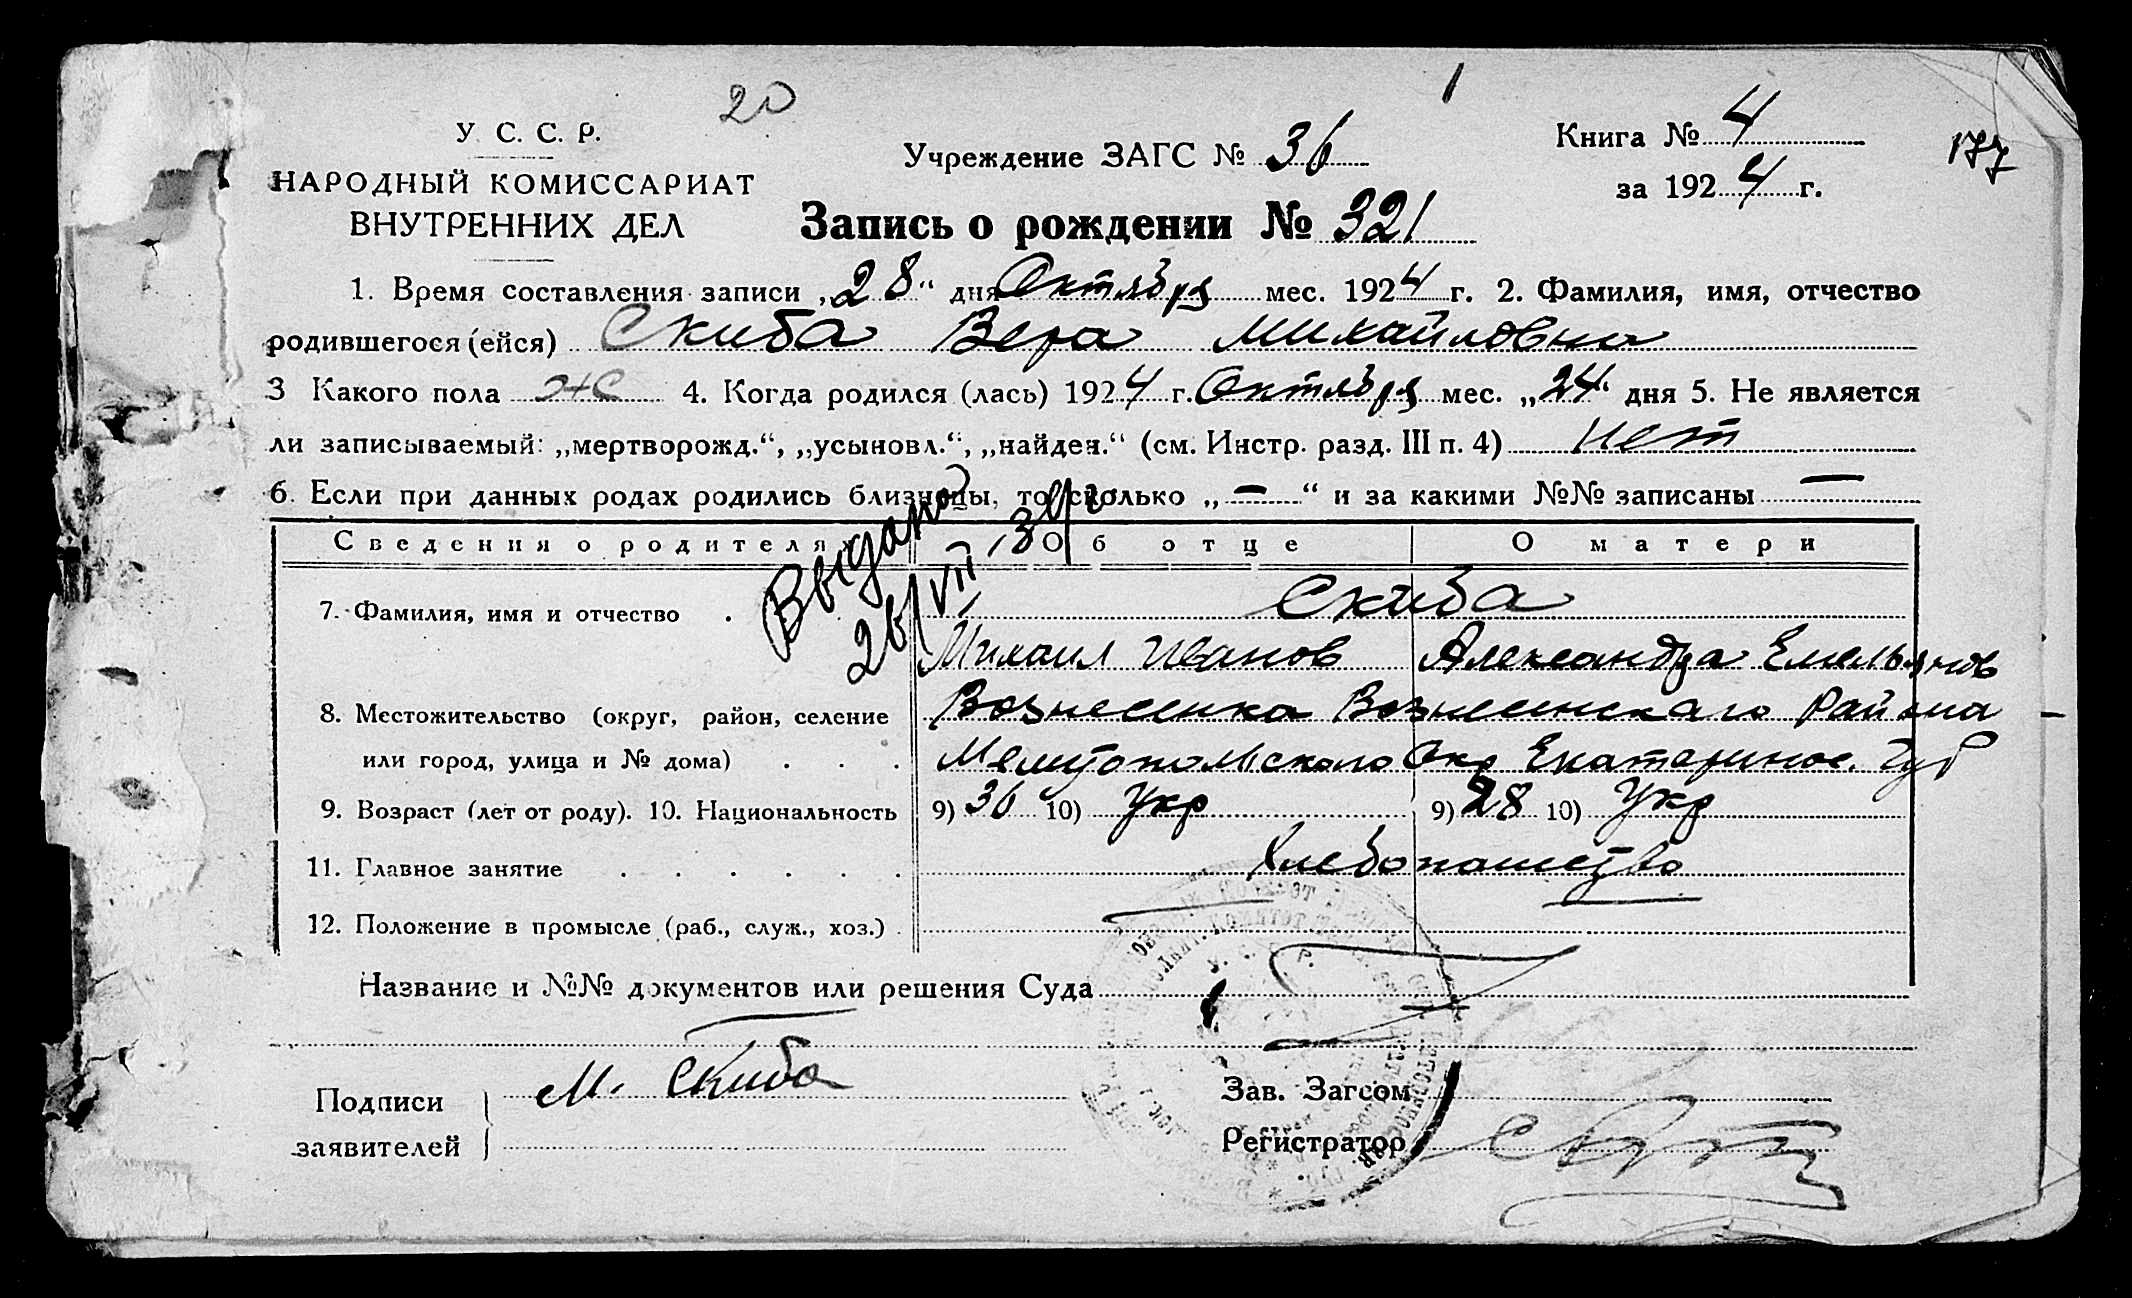 20
1
У. С. С. Р.
НАРОДНЫЙ КОМИССАРИАТ
ВНУТРЕННИХ ДЕЛ
Учреждение ЗАГС № 36
Книга № 4
за 1924 г.
177
Запись о рождении № 321
1. Время составления записи „28“ дня Октября мес. 1924 г. 2. Фамилия, имя, отчество
родившегося (ейся) Скиба Вера Михайловна
3 Какого пола ж 4. Когда родился (лась) 1924 г. Октября мес. „24“ дня 5. Не является
ли записываемый: „мертворожд.“, „усыновл.“, „найден.“ (см. Инстр. разд. III п. 4) Нет
6. Если при данных родах родились близнецы, то сколько „—“ и за какими №№ записаны —
Сведения о родителях Об отце О матери
Выдано
26/VII
7. Фамилия, имя и отчество . Скиба
Михаил Иванов Александра Емельянов
8. Местожительство (округ, район, селение Вознесенка Вознесенскаго Района
или город, улица и № дома) . . . Мелитопольского Окр Екатеринос. Губ
9. Возраст (лет от роду). 10. Национальность 9) 36 10) Укр 9) 28 10) Укр
11. Главное занятие . . . . . . Хлебопашество
12. Положение в промысле (раб., служ., хоз.) .
Название и №№ документов или решения Суда
Подписи
заявителей
М. Скиба
Зав. Загсом
Регистратор